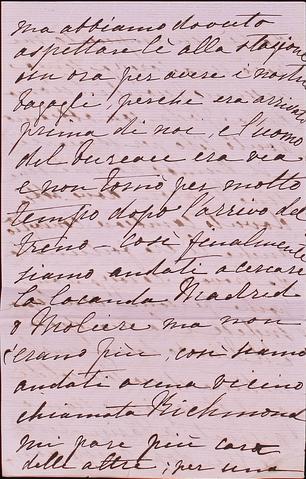 ma abbiamo dovuto
aspettare lè alla stazione
un ora per avere i nostri
bagagli, perchè era arrivato
prima di noi, e l'uomo
del bureau era via
e non tornò per molto
tempo dopo l'arrivo del
treno - Così finalmente
siamo andati a cercare
la locanda Madrid
& Moliere ma non
c'erano più, così siamo
andati a una vicino
chiamata Richmond
mi pare più cara
delle altre; per una